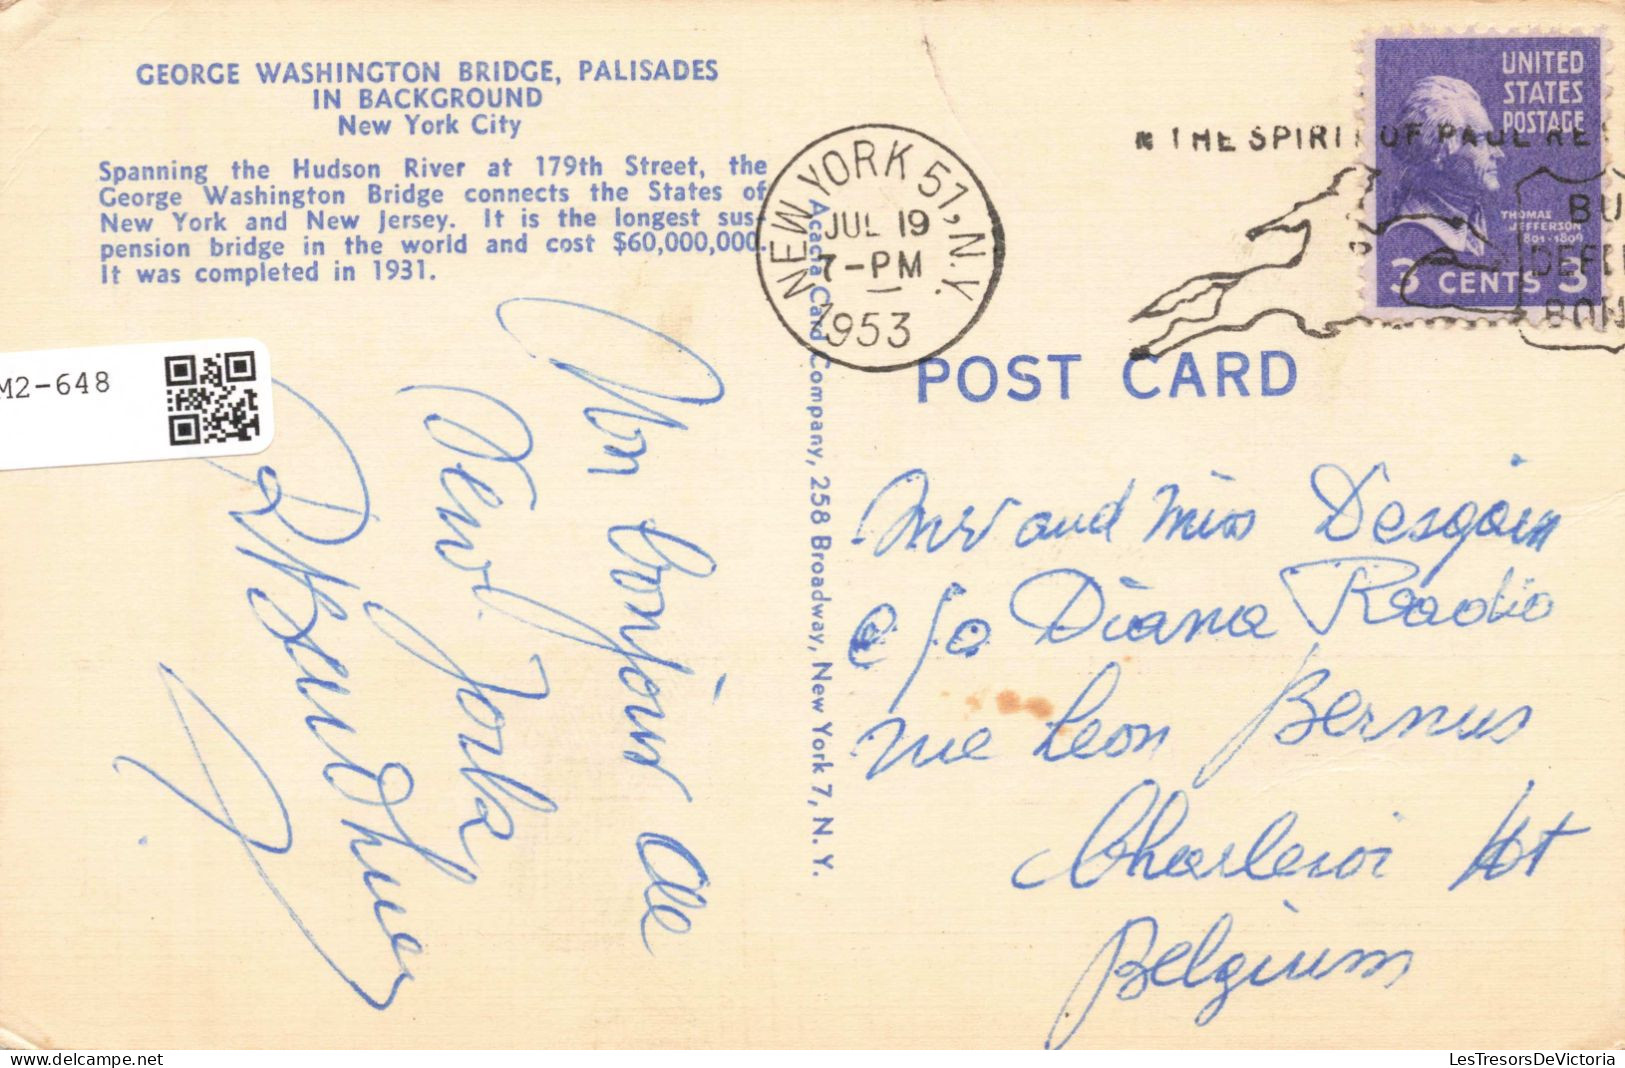 GEORGE WASHINGTON BRIDGE, PALISADES
IN BACKGROUND
New York City
Spanning the Hudson River at 179th Street, the
George Washington Bridge connects the States of
New York and New Jersey. It is the longest sus-
pension bridge in the world and cost $60,000,000.
It was completed in 1931.
M2-648
Mon bonjour de
New York
Acacia Card Company, 258 Broadway, New York 7, N. Y.
NEW YORK 51, N.Y.
JUL 19
7-PM
1953
THE SPIRIT OF PAUL RE
BU
DEFE
BON
UNITED
STATES
POSTAGE
THOMAS
JEFFERSON
1801-1809
3 CENTS 3
POST CARD
Mr and Miss Desgain
c/o Diana Radio
rue Leon Bernus
Charleroi
Belgium
LesTresorsDeVictoria
delcampe.net